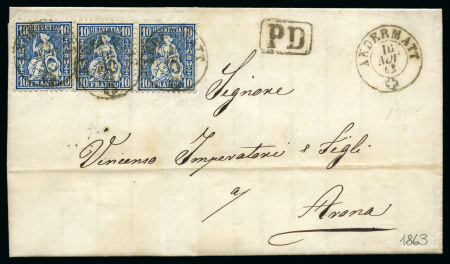 10 HELVETIA 10
10 FRANCO 10
10 HELVETIA 10
10 FRANCO 10
10 HELVETIA 10
10 FRANCO 10
PD
ANDERMATT
16
63
Signore
Vincenso Imperatori e Figli
a/
Arona
1863